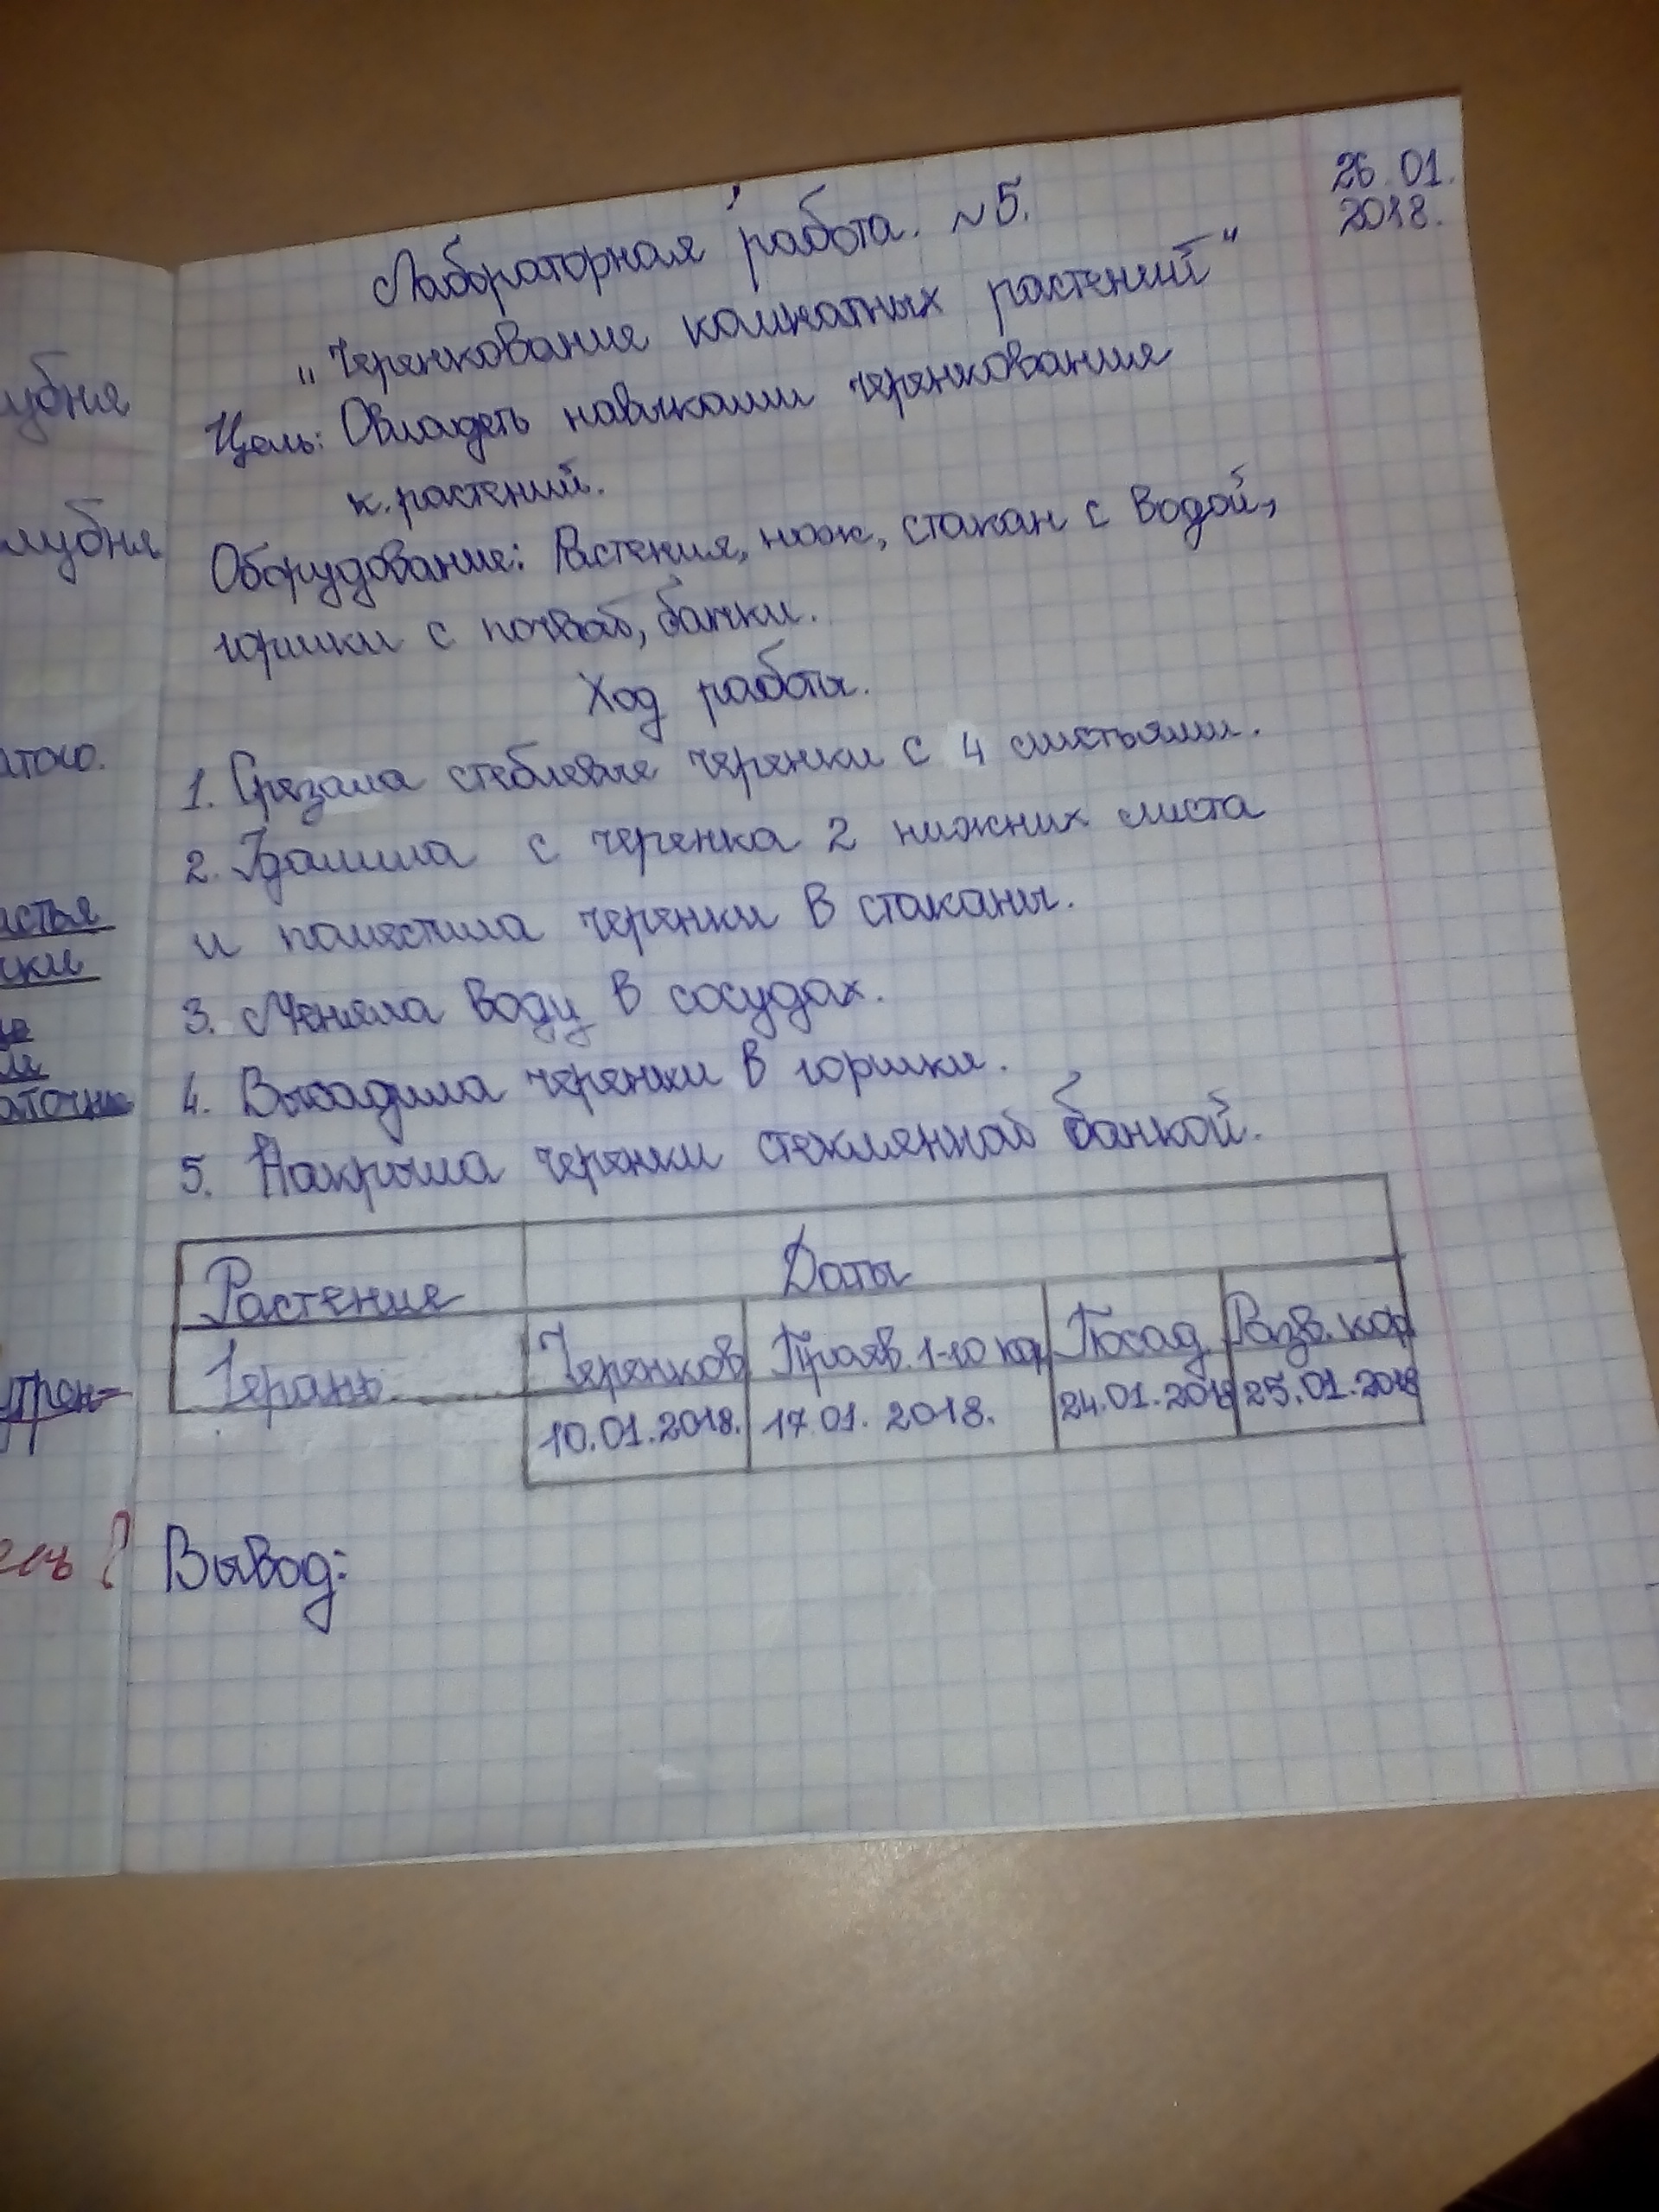 26.01.
2018.
Лабораторная работа. N5.
"Черенкование комнатных растений"
Цель: Овладеть навыками черенкования
к. растений.
Оборудование: Растения, нож, стакан с водой,
горшки с почвой, банки.
Ход работы.
1. Срезала стеблевые черенки с 4 листьями.
2. Удалила с черенка 2 нижних листа
и поместила черенки в стаканы.
3. Меняла воду в сосудах.
4. Высадила черенки в горшки.
5. Накрыла черенки стеклянной банкой.
Растение Даты
Герань Черенков Прояв. 1-го кор Посад Разв. кор
10.01.2018. 17.01.2018. 24.01.2018 25.01.2018
Вывод:
убня
лубня
атого.
истья
чки
ые
ли
аточные
утрен-